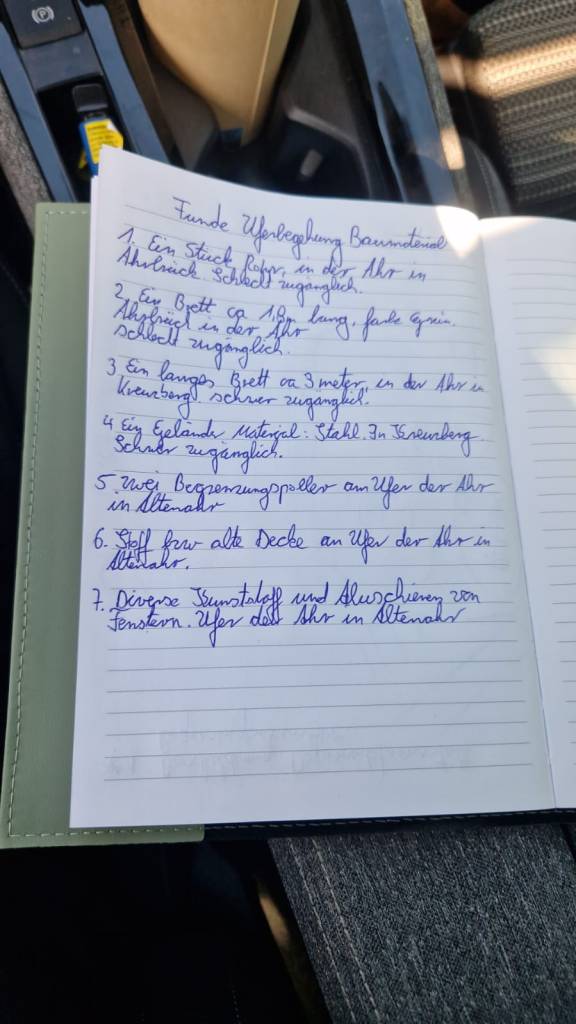 Funde Uferbegehung Baumaterial
1. Ein Stück Rohr, in der Ahr in
Ahrbrück. Schlecht zugänglich.
2. Ein Brett ca 1,8m lang, farbe Grün.
Ahrbrück in der Ahr
schlecht zugänglich.
3 Ein langes Brett ca 3 meter, in der Ahr in
Kreuzberg schwer zugänglich.
4 Ein Geländer Material: Stahl. In Kreuzberg
Schwer zugänglich.
5. zwei Begrenzungspoller am Ufer der Ahr
in Altenahr
6. Stoff bzw alte Decke an Ufer der Ahr in
Altenahr.
7. Diverse Kunststoff und Aluschienen von
Fenstern. Ufer der Ahr in Altenahr